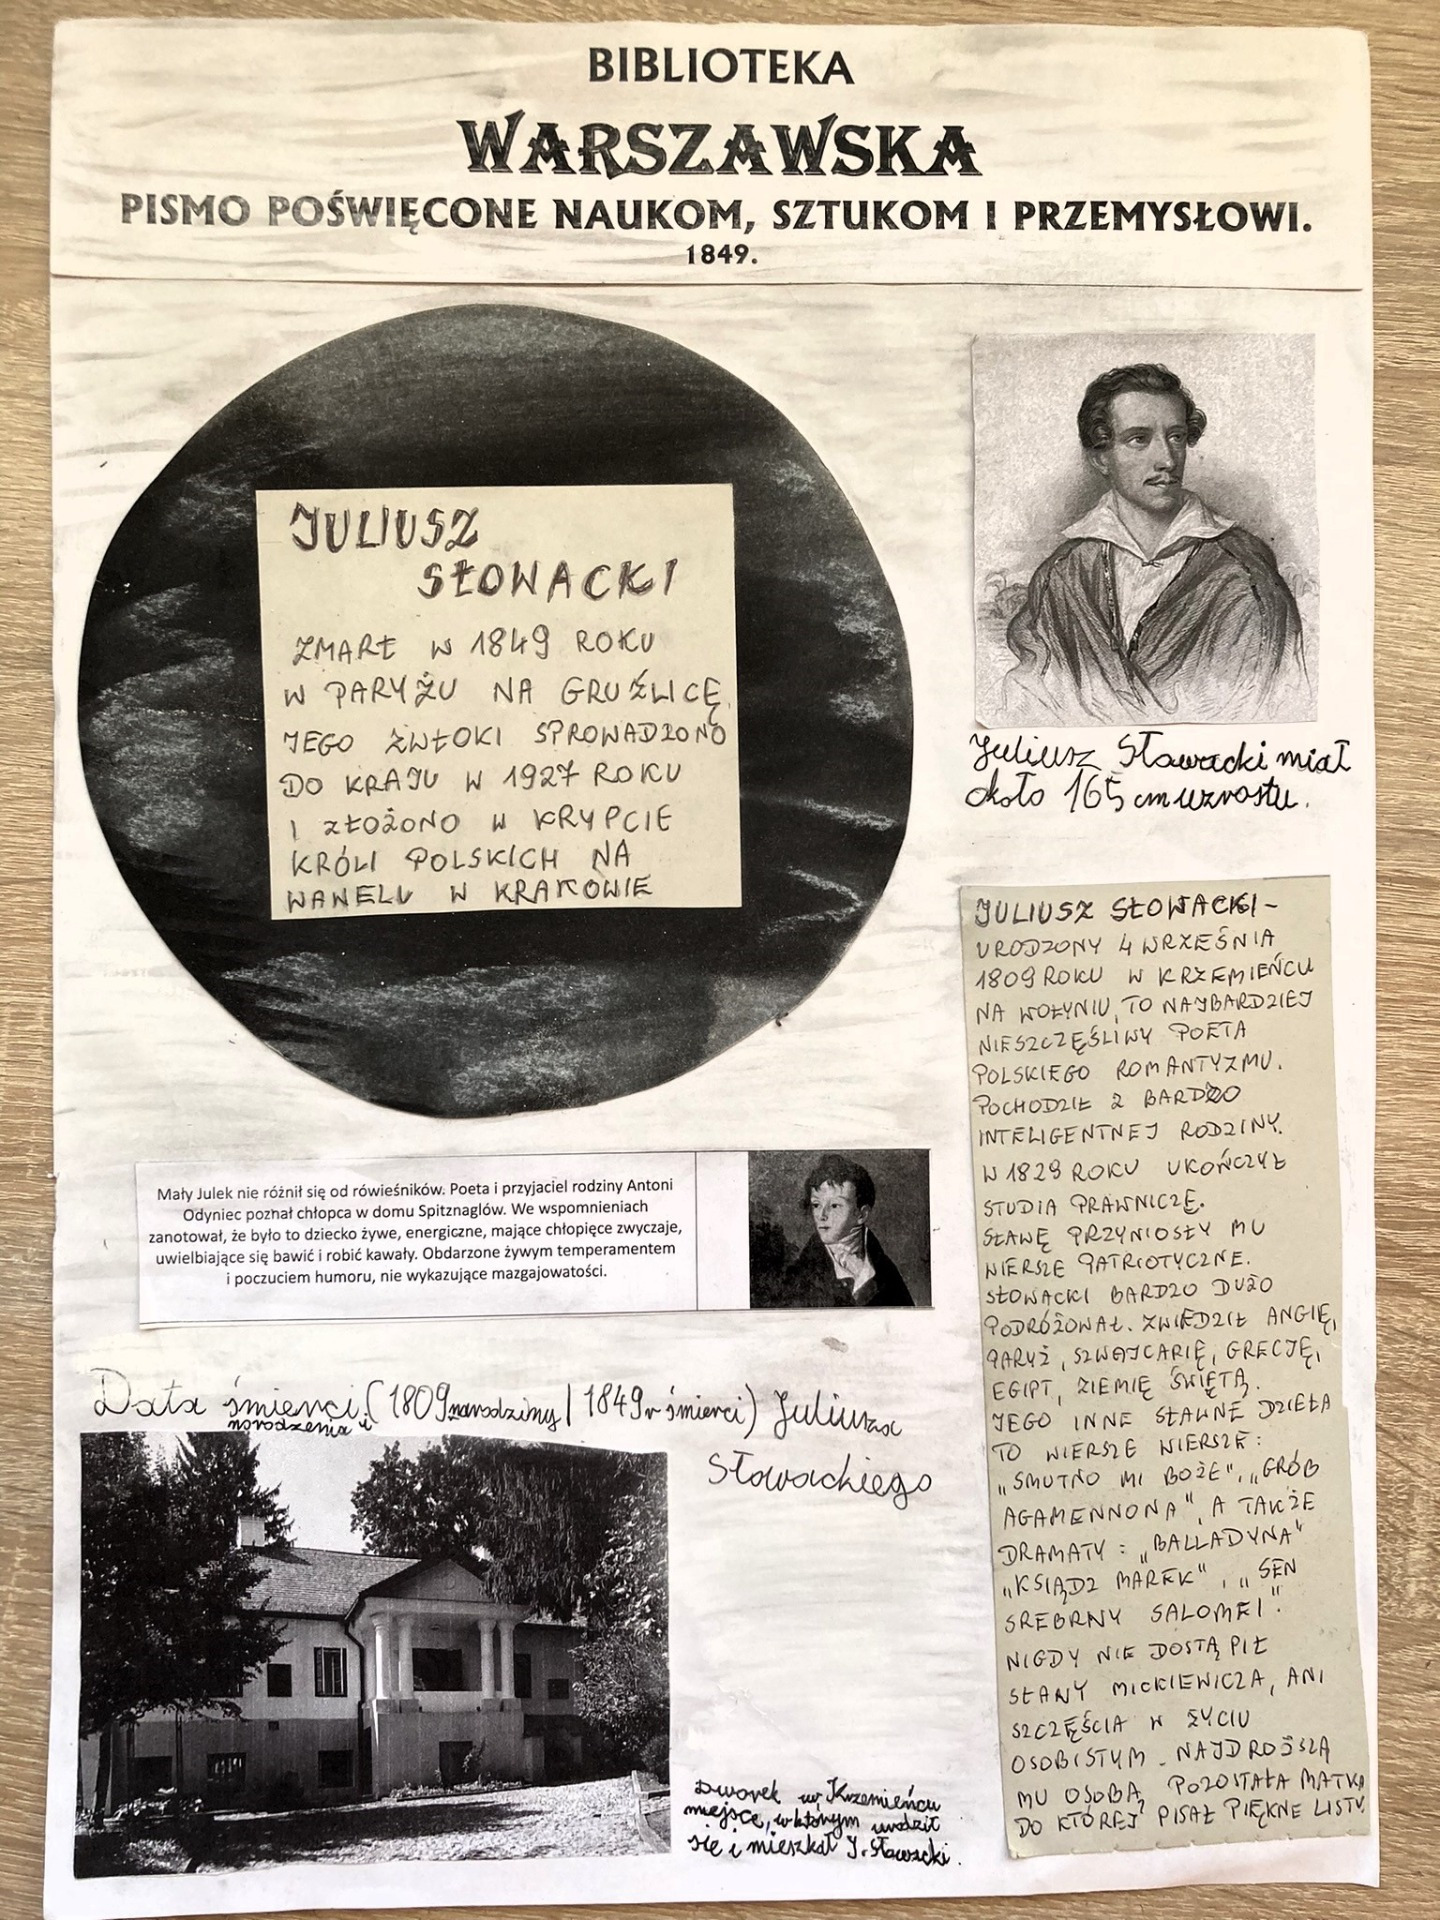 BIBLIOTEKA
WARSZAWSKA
PISMO POŚWIĘCONE NAUKOM, SZTUKOM I PRZEMYSŁOWI.
1849.
JULIUSZ
SŁOWACKI
ZMARŁ W 1849 ROKU
W PARYŻU NA GRUŹLICĘ.
JEGO ZWŁOKI SPROWADZONO
DO KRAJU W 1927 ROKU
I ZŁOŻONO W KRYPCIE
KRÓLI POLSKICH NA
WAWELU W KRAKOWIE
Juliusz Słowacki miał
około 165 cm wzrostu.
JULIUSZ SŁOWACKI -
URODZONY 4 WRZEŚNIA
1809 ROKU W KRZEMIEŃCU
NA WOŁYNIU, TO NAJBARDZIEJ
NIESZCZĘŚLIWY POETA
POLSKIEGO ROMANTYZMU.
POCHODZIŁ Z BARDZO
INTELIGENTNEJ RODZINY.
W 1829 ROKU UKOŃCZYŁ
STUDIA PRAWNICZE.
SŁAWĘ PRZYNIOSŁY MU
WIERSZE PATRIOTYCZNE.
SŁOWACKI BARDZO DUŻO
PODRÓŻOWAŁ. ZWIEDZIŁ ANGIĘ,
PARYŻ, SZWAJCARIĘ, GRECJĘ,
EGIPT, ZIEMIĘ ŚWIĘTĄ.
JEGO INNE SŁAWNE DZIEŁA
TO WIERSZE WIERSZE:
„SMUTNO MI BOŻE", „GRÓB
AGAMENNONA", A TAKŻE
DRAMATY: „BALLADYNA"
„KSIĄDZ MAREK", „SEN
SREBRNY SALOMEI".
NIGDY NIE DOSTĄPIŁ
SŁAWY MICKIEWICZA, ANI
SZCZĘŚCIA W ŻYCIU
OSOBISTYM. NAJDROŻSZĄ
MU OSOBĄ POZOSTAŁA MATKA
DO KTÓREJ PISAŁ PIĘKNE LISTY.
Mały Julek nie różnił się od rówieśników. Poeta i przyjaciel rodziny Antoni
Odyniec poznał chłopca w domu Spitznaglów. We wspomnieniach
zanotował, że było to dziecko żywe, energiczne, mające chłopięce zwyczaje,
uwielbiające się bawić i robić kawały. Obdarzone żywym temperamentem
i poczuciem humoru, nie wykazujące mazgajowatości.
Data śmierci (1809 narodziny / 1849 r śmierci) Juliusza
narodzenia i
Słowackiego
Dworek w Krzemieńcu
miejsce, w którym urodził
się i mieszkał J. Słowacki.